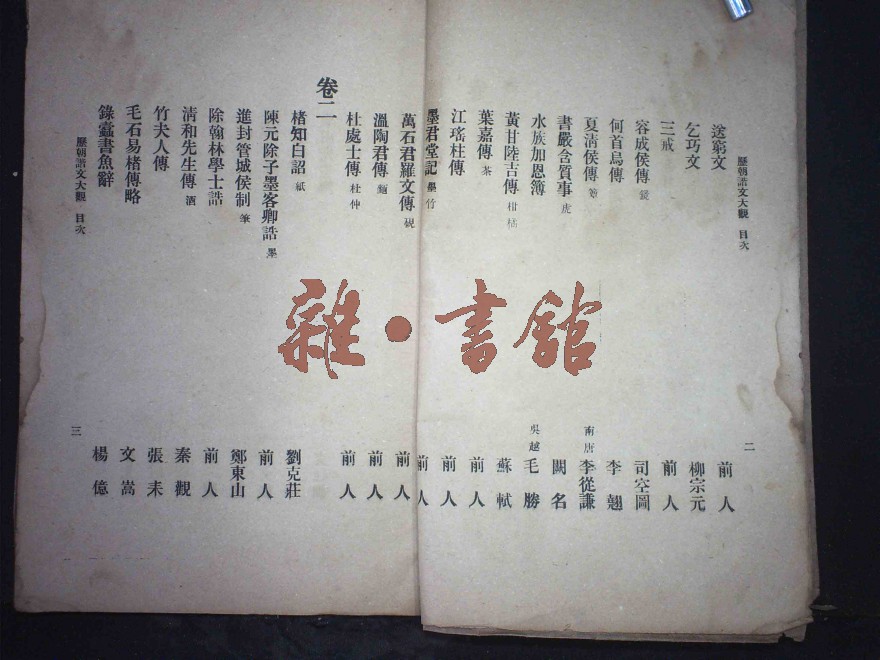 歷朝諧文大觀 目次
送窮文 前人
乞巧文 柳宗元
三戒 前人
容成侯傳 鏡 司空圖
何首烏傳 李翹
夏清侯傳 簟 南唐 李從謙
書嚴含質事 虎 闕名
水族加恩簿 吳越 毛勝
黃甘陸吉傳 柑橘 蘇軾
葉嘉傳 茶 前人
江瑤柱傳 前人
墨君堂記 墨竹 前人
萬石君羅文傳 硯 前人
溫陶君傳 麵 前人
杜處士傳 杜仲 前人
二
卷二
楮知白詔 紙 劉克莊
陳元除子墨客卿誥 墨 前人
進封管城侯制 筆 鄭東山
除翰林學士誥 前人
清和先生傳 酒 秦觀
竹夫人傳 張耒
毛石易楮傳略 文嵩
錄蠹書魚辭 楊億
歷朝諧文大觀 目次
三
雜·書館